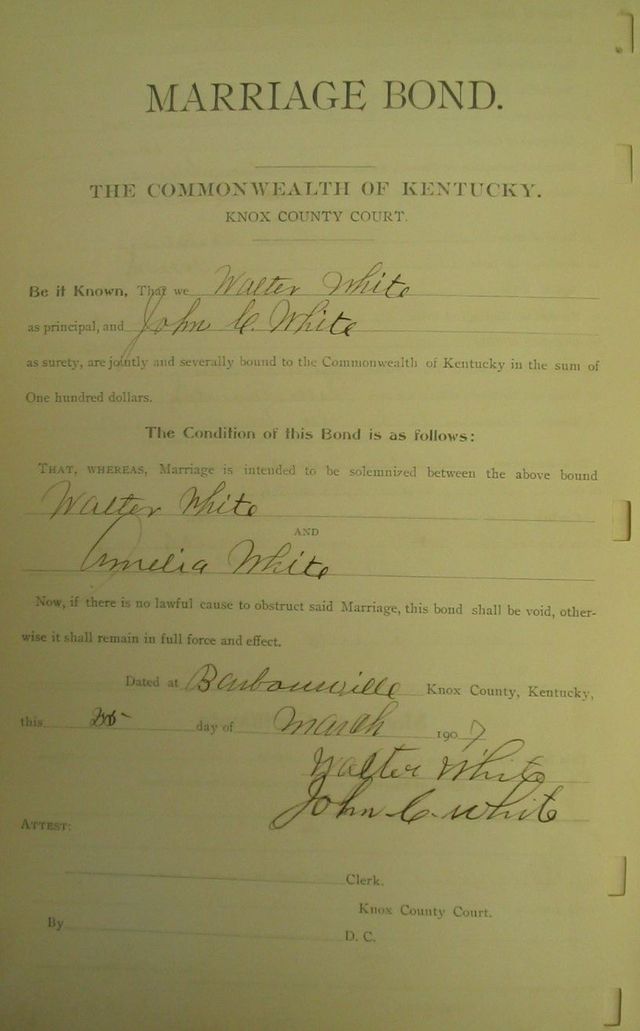 MARRIAGE BOND.
THE COMMONWEALTH OF KENTUCKY.
KNOX COUNTY COURT.
Be it Known, That we Walter White
as principal, and John C. White
as surety, are jointly and severally bound to the Commonwealth of Kentucky in the sum of
One hundred dollars.
The Condition of this Bond is as follows:
THAT, WHEREAS, Marriage is intended to be solemnized between the above bound
Walter White
AND
Amelia White
Now, if there is no lawful cause to obstruct said Marriage, this bond shall be void, other-
wise it shall remain in full force and effect.
Dated at Barbourville Knox County, Kentucky,
this day of March 1907
Walter White
John C. White
ATTEST:
Clerk.
Knox County Court.
By D. C.